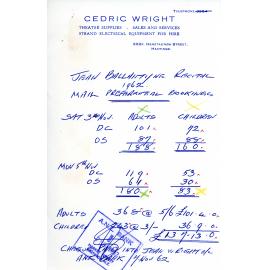 TELEPHONE
CEDRIC WRIGHT
THEATRE SUPPLIES . SALES AND SERVICES
STRAND ELECTRICAL EQUIPMENT FOR HIRE
STREET,
HASTINGS.
JEAN BALLANTYNE RECITAL
1962.
MAIL PREFERENTIAL BOOKINGS
SAT 3rd Nov ADULTS CHILDREN
DC 101. 72.
OS 87. 88.
188. 160.
MON 5th Nov
DC 119. 53.
OS 64. 30.
180. 83.
ADULTS 368 @ 5/6 £101. 4. 0.
CHILDREN 243 @ 3/- 36. 9. 0
£137.13.0.
INTO JEAN WRIGHT A/C
ANZ BANK Nov 62